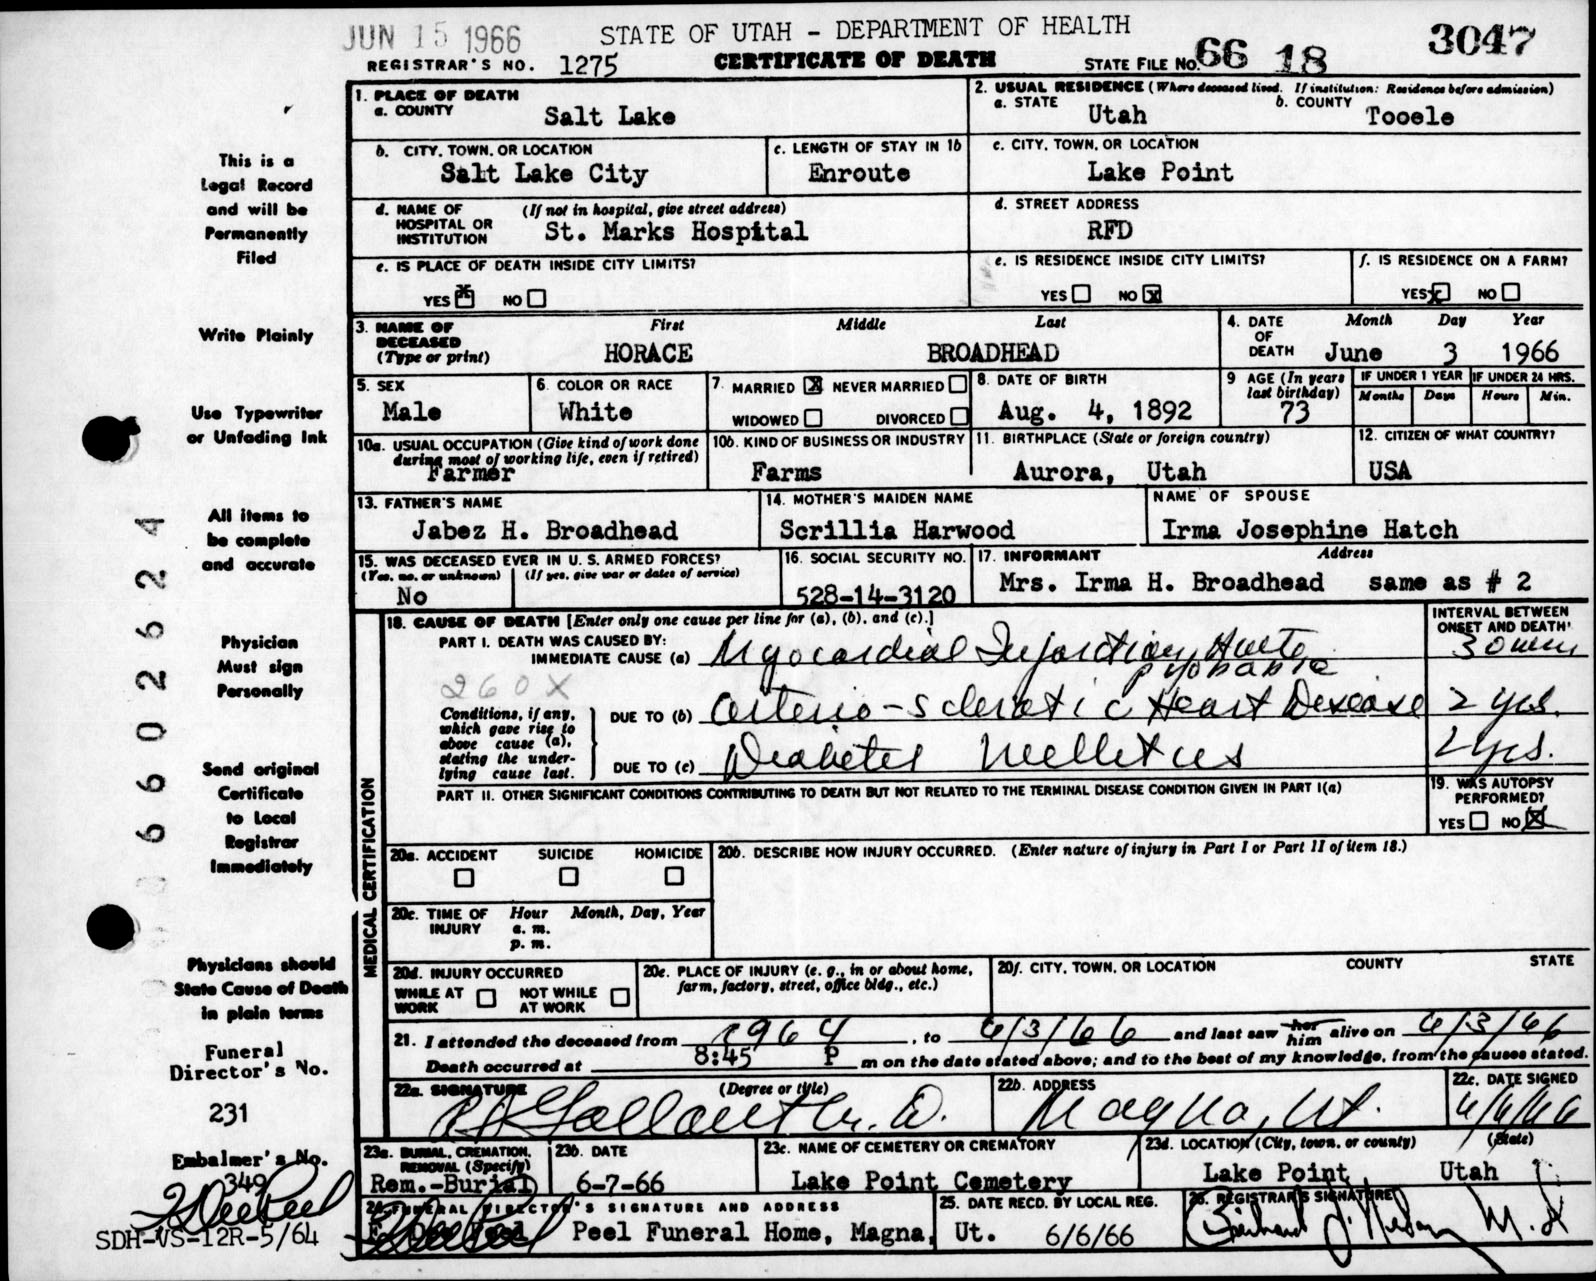 JUN 15 1966
STATE OF UTAH - DEPARTMENT OF HEALTH
3047
REGISTRAR'S NO. 1275
CERTIFICATE OF DEATH
STATE FILE NO. 66 18
This is a
Legal Record
and will be
Permanently
Filed
Write Plainly
Use Typewriter
or Unfading Ink
All items to
be complete
and accurate
Physician
Must sign
Personally
Send original
Certificate
to Local
Registrar
Immediately
Physicians should
State Cause of Death
in plain terms
Funeral
Director's No.
231
Embalmer's No.
349
SDH-VS-12R-5/64
1. PLACE OF DEATH
a. COUNTY Salt Lake
2. USUAL RESIDENCE (Where deceased lived. If institution: Residence before admission)
a. STATE Utah b. COUNTY Tooele
b. CITY, TOWN, OR LOCATION
Salt Lake City
c. LENGTH OF STAY IN 1b
Enroute
c. CITY, TOWN, OR LOCATION
Lake Point
d. NAME OF HOSPITAL OR INSTITUTION (If not in hospital, give street address)
St. Marks Hospital
d. STREET ADDRESS
RFD
e. IS PLACE OF DEATH INSIDE CITY LIMITS?
YES X NO
e. IS RESIDENCE INSIDE CITY LIMITS?
YES NO X
f. IS RESIDENCE ON A FARM?
YES X NO
3. NAME OF DECEASED (Type or print)
First Middle Last
HORACE BROADHEAD
4. DATE OF DEATH Month Day Year
June 3 1966
5. SEX
Male
6. COLOR OR RACE
White
7. MARRIED X NEVER MARRIED
WIDOWED DIVORCED
8. DATE OF BIRTH
Aug. 4, 1892
9 AGE (In years last birthday)
73
IF UNDER 1 YEAR IF UNDER 24 HRS.
Months Days Hours Min.
10a. USUAL OCCUPATION (Give kind of work done during most of working life, even if retired)
Farmer
10b. KIND OF BUSINESS OR INDUSTRY
Farms
11. BIRTHPLACE (State or foreign country)
Aurora, Utah
12. CITIZEN OF WHAT COUNTRY?
USA
13. FATHER'S NAME
Jabez H. Broadhead
14. MOTHER'S MAIDEN NAME
Scrillia Harwood
NAME OF SPOUSE
Irma Josephine Hatch
15. WAS DECEASED EVER IN U. S. ARMED FORCES?
(Yes, no, or unknown) (If yes, give war or dates of service)
No
16. SOCIAL SECURITY NO.
528-14-3120
17. INFORMANT Address
Mrs. Irma H. Broadhead same as # 2
MEDICAL CERTIFICATION
18. CAUSE OF DEATH [Enter only one cause per line for (a), (b), and (c).]
PART I. DEATH WAS CAUSED BY:
IMMEDIATE CAUSE (a) Myocardial Infarction, Acute
probable
INTERVAL BETWEEN ONSET AND DEATH
30 min
260X
Conditions, if any, which gave rise to above cause (a), stating the underlying cause last.
DUE TO (b) Arterio-sclerotic Heart Disease 2 yrs.
DUE TO (c) Diabetes Mellitus 2 yrs.
PART II. OTHER SIGNIFICANT CONDITIONS CONTRIBUTING TO DEATH BUT NOT RELATED TO THE TERMINAL DISEASE CONDITION GIVEN IN PART I(a)
19. WAS AUTOPSY PERFORMED?
YES NO X
20a. ACCIDENT SUICIDE HOMICIDE
20b. DESCRIBE HOW INJURY OCCURRED. (Enter nature of injury in Part I or Part II of item 18.)
20c. TIME OF INJURY Hour Month, Day, Year
a. m.
p. m.
20d. INJURY OCCURRED
WHILE AT WORK NOT WHILE AT WORK
20e. PLACE OF INJURY (e. g., in or about home, farm, factory, street, office bldg., etc.)
20f. CITY, TOWN, OR LOCATION COUNTY STATE
21. I attended the deceased from 1964, to 6/3/66 and last saw her him alive on 6/3/66
Death occurred at 8:45 P m on the date stated above; and to the best of my knowledge, from the causes stated.
22a. SIGNATURE (Degree or title)
22b. ADDRESS
Magna, Ut.
22c. DATE SIGNED
6/6/66
23a. BURIAL, CREMATION, REMOVAL (Specify)
Rem.-Burial
23b. DATE
6-7-66
23c. NAME OF CEMETERY OR CREMATORY
Lake Point Cemetery
23d. LOCATION (City, town, or county) (State)
Lake Point Utah
24. FUNERAL DIRECTOR'S SIGNATURE AND ADDRESS
Peel Funeral Home, Magna, Ut.
25. DATE RECD. BY LOCAL REG.
6/6/66
26. REGISTRAR'S SIGNATURE
6602624